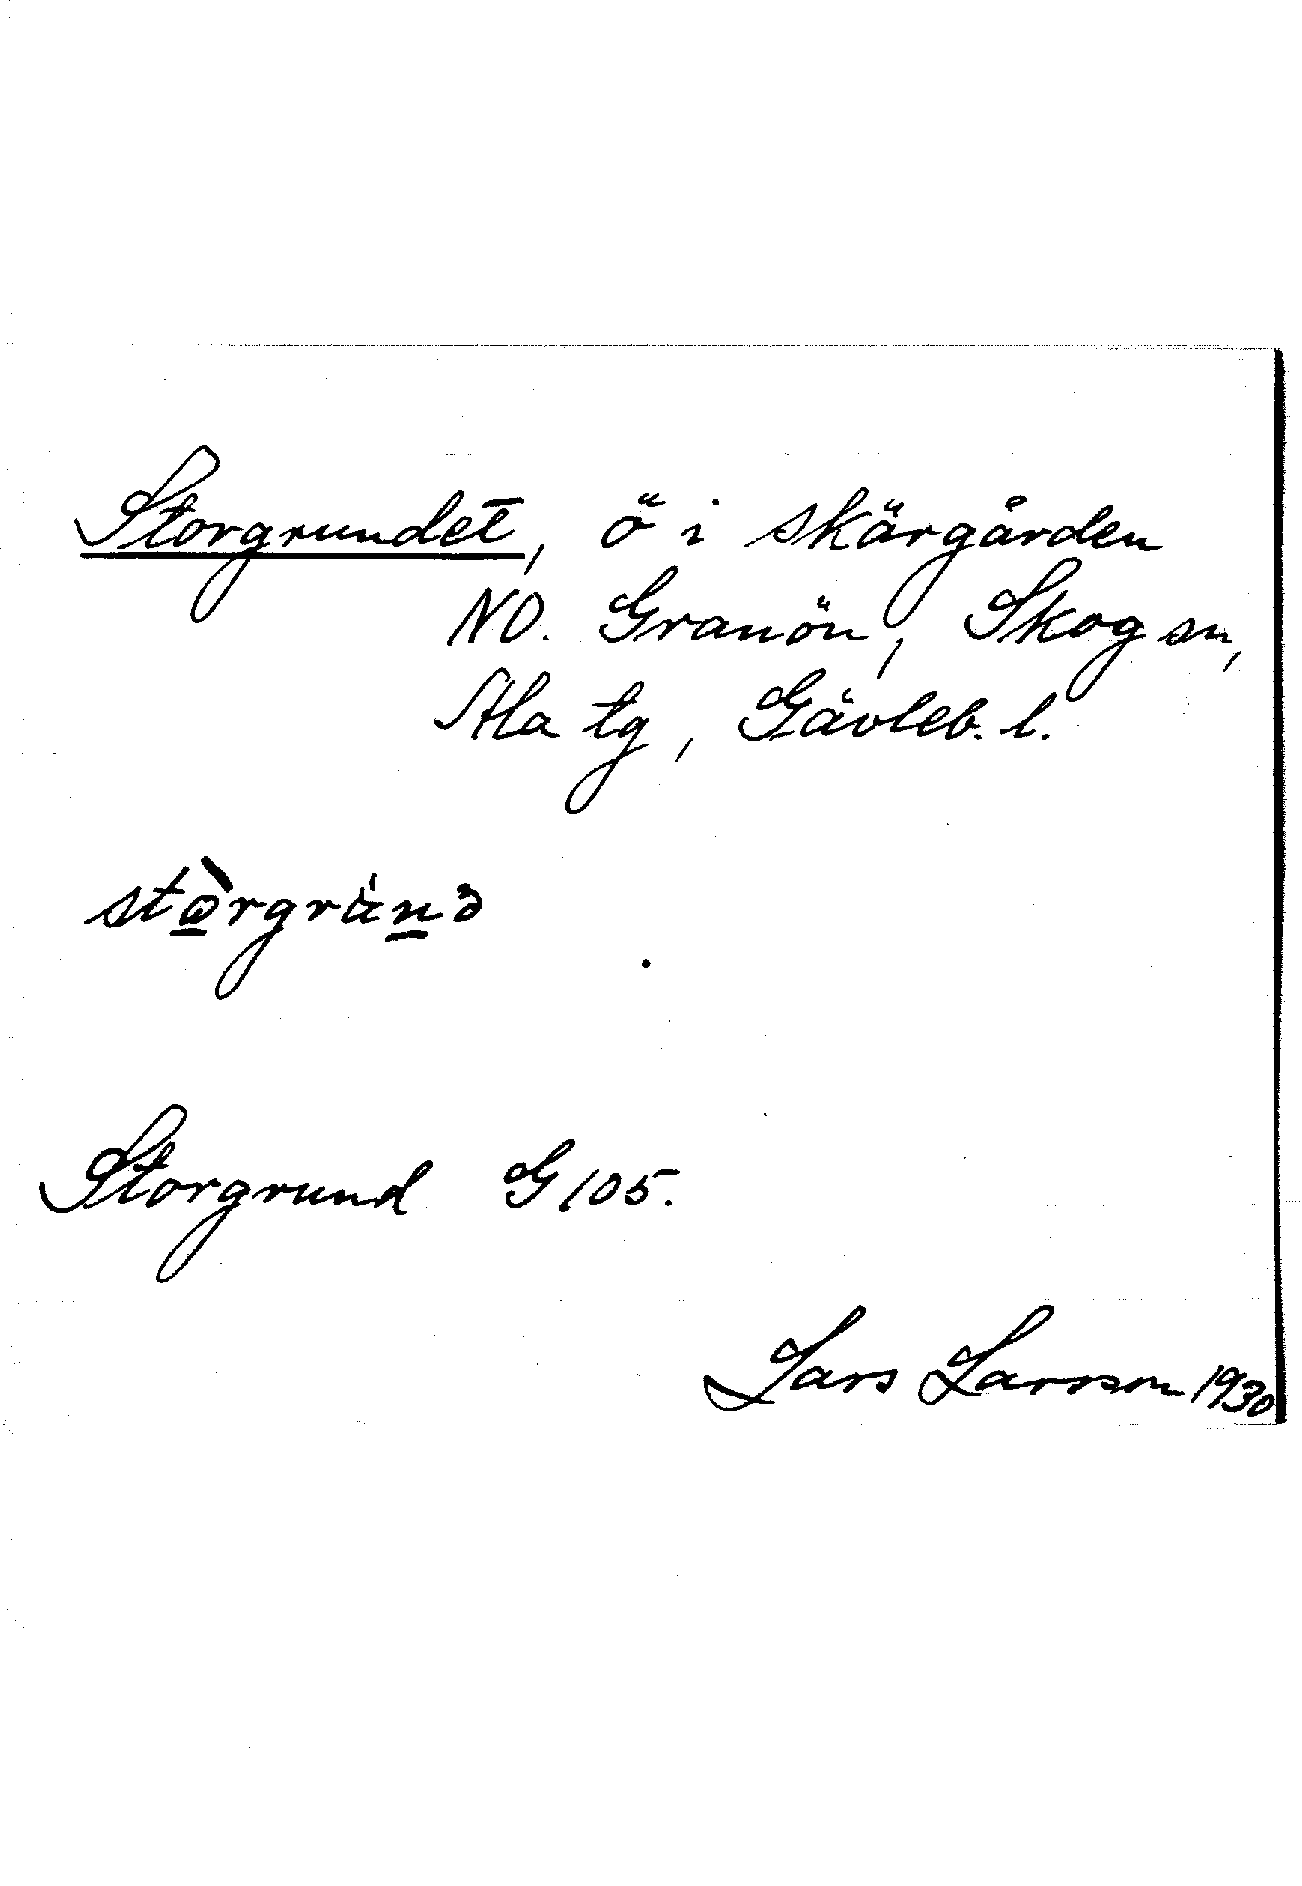 Storgrundet, ö i skärgården
NO. Granön, Skog sn,
Ala tg, Gävleb. l.
Storgrund G 105.
Lars Larsson 1930